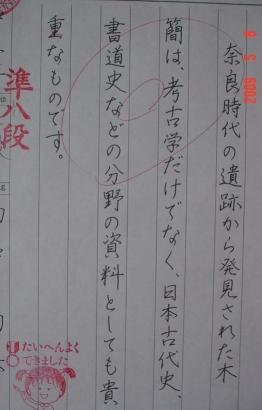 奈良時代の遺跡から発見された木
簡は、考古学だけでなく、日本古代史、
書道史などの分野の資料としても貴
重なものです。
準八段
たいへんよく
できました